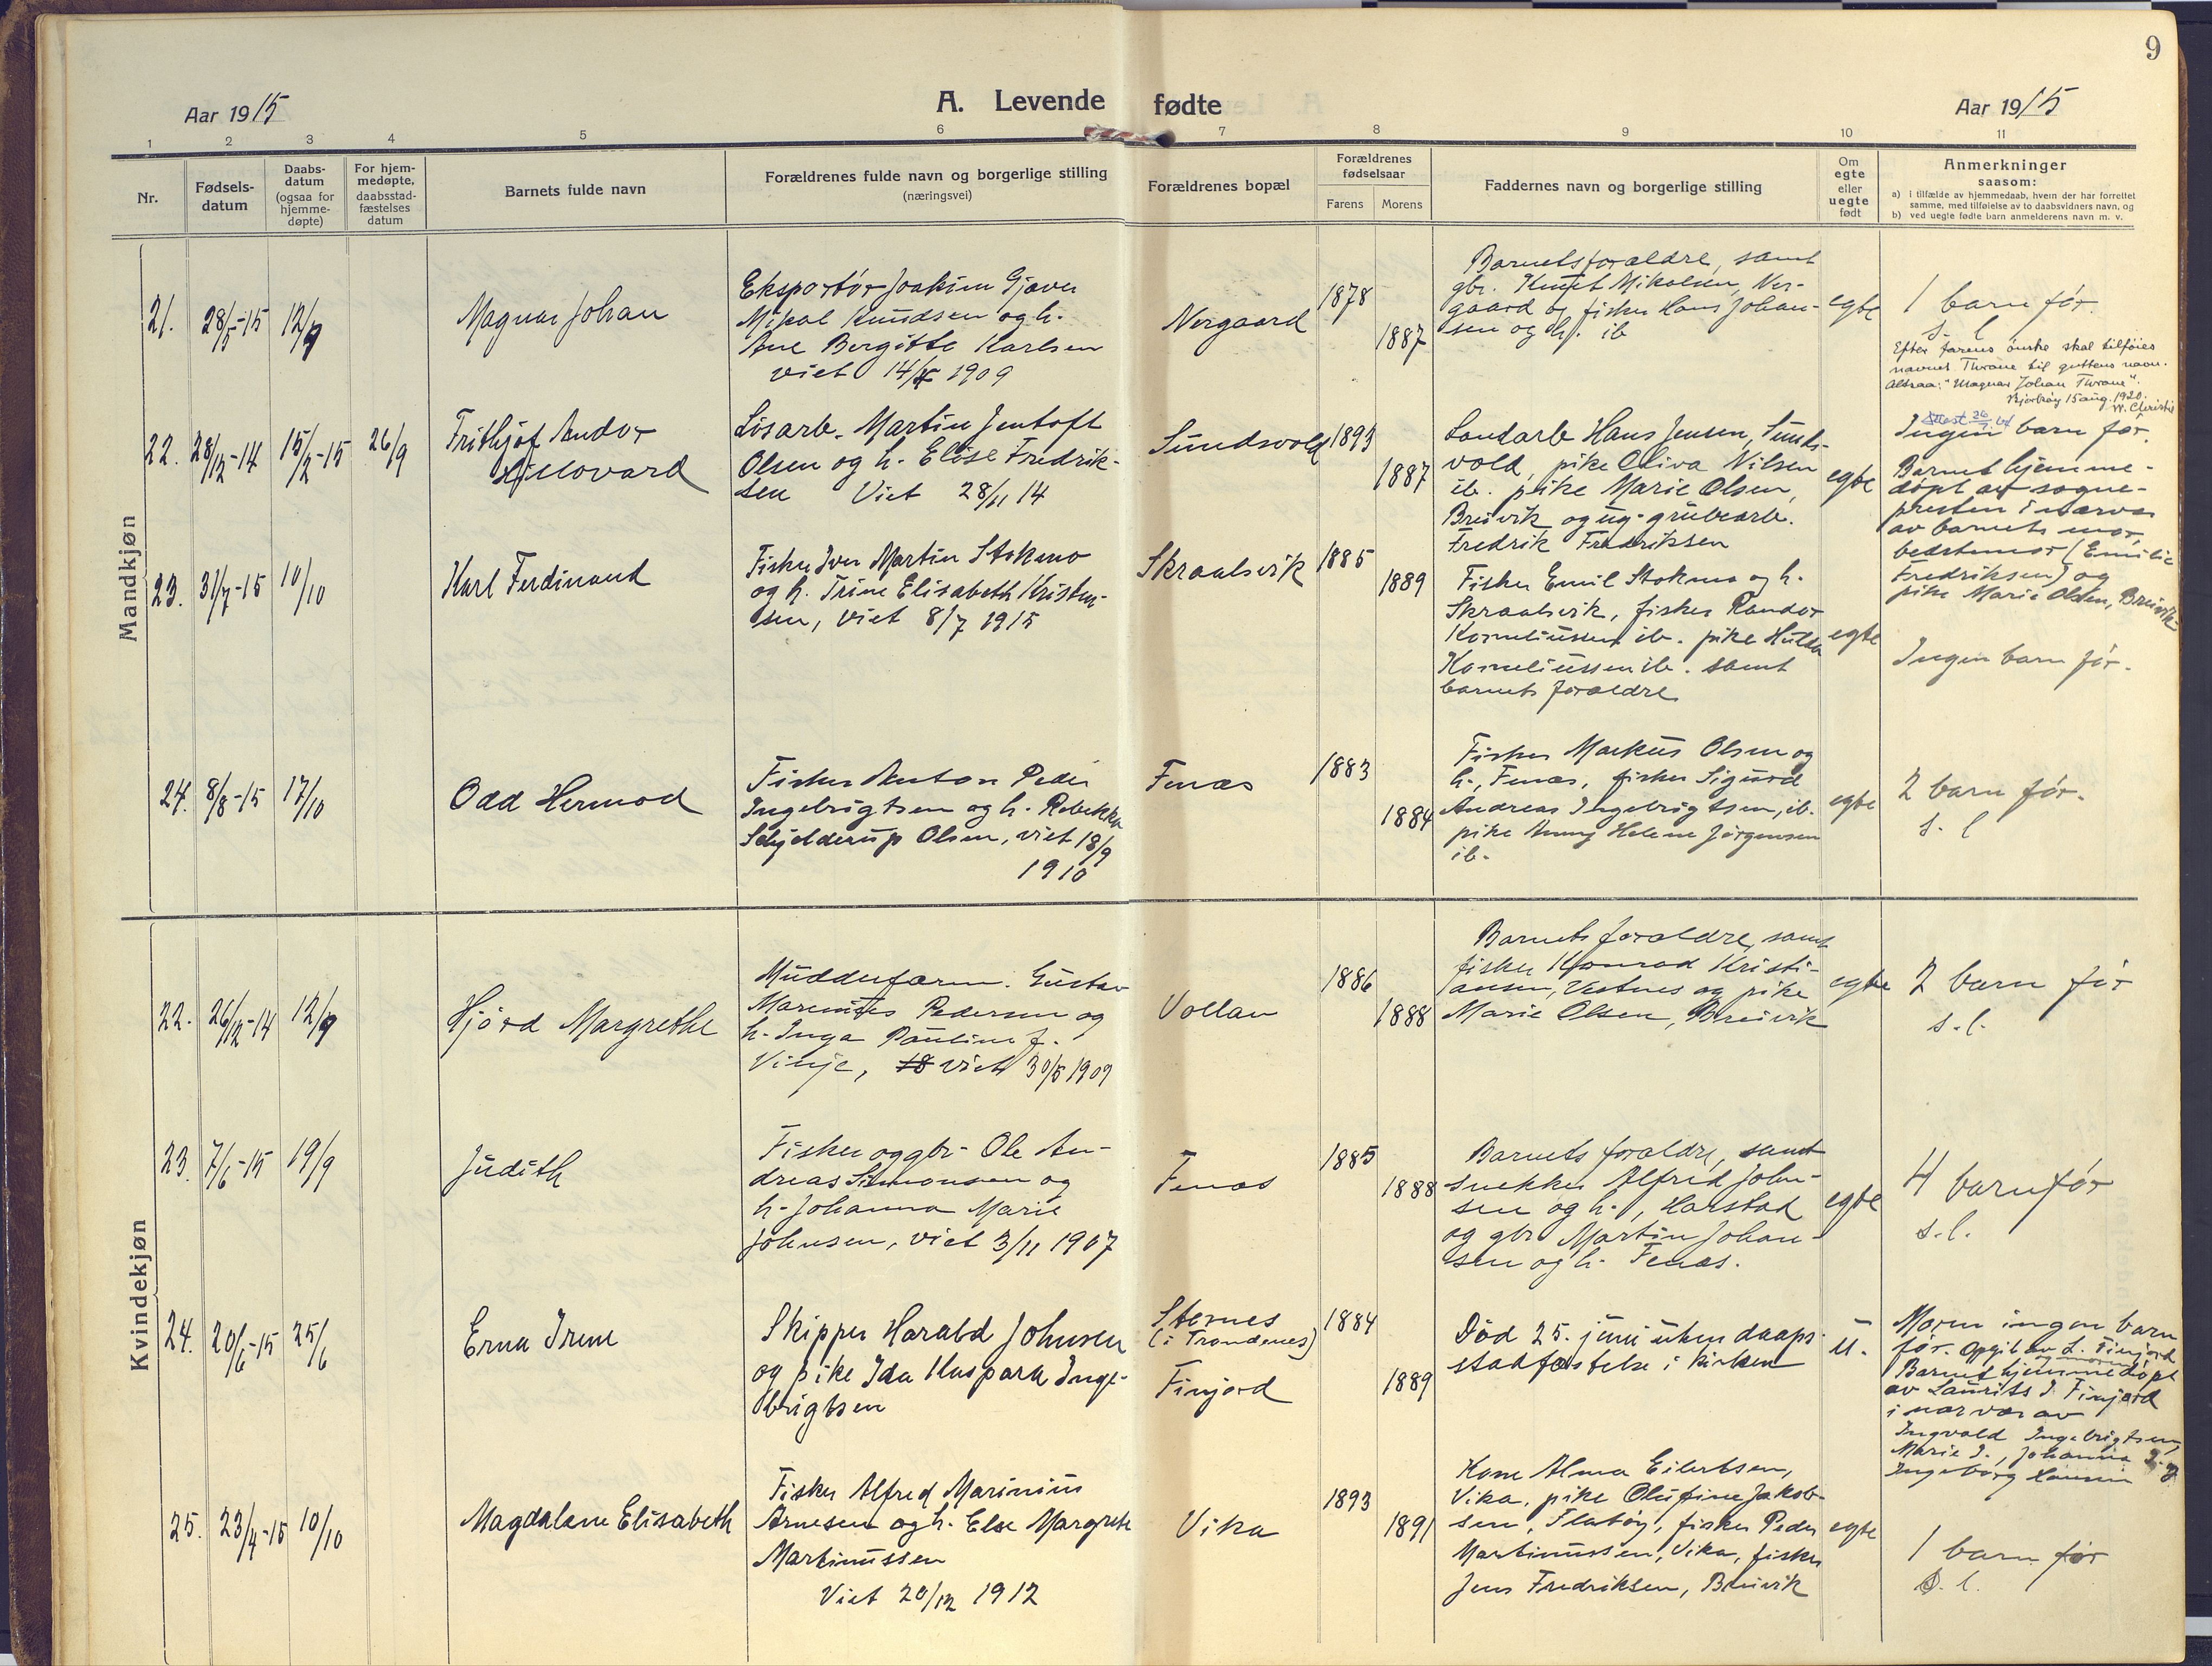 9
Aar 1915
A. Levende fødte
Aar 1915
1 2 3 4 5 6 7 8 9 10 11
Nr.
Fødsels-
datum
Daabs-
datum
(ogsaa for
hjemme-
døpte)
For hjem-
medøpte,
daabsstad-
fæstelses
datum
Barnets fulde navn
Forældrenes fulde navn og borgerlige stilling
(næringsvei)
Forældrenes bopæl
Forældrenes
fødselsaar
Farens Morens
Faddernes navn og borgerlige stilling
Om
egte
eller
uegte
født
Anmerkninger
saasom:
a) i tilfælde av hjemmedaab, hvem der har forrettet
samme, med tilføielse av to daabsvidners navn, og
b) ved uegte fødte barn anmelderens navn m. v.
Mandkjøn
21. 28/5-15 12/9
Magnar Johan
Eksportør Joakim Gjæver
Mikal Knudsen og h.
Ane Bergitte Karlsen
viet 14/ 1909
Nergaard
1878
1887
Barnets forældre, samt
gbr. Knut Mikalsen, Ner-
gaard og fisker Hans Johan-
sen og h. ib
egte
1 barn før.
s. l
Efter farens ønske skal tilføies
navnet Thrane til guttens navn.
Altsaa: "Magnar Johan Thrane".
Bjarkøy 15 aug. 1920.
W. Christie
22. 28/12-14 15/2-15 26/9
Frithjof Andor
Hillovard
Løsarb. Martin Jentoft
Olsen og h. Elise Fredrik-
sen Viet 28/11 14
Sundsvold
1893
1887
Landarb Hans Jensen, Sunds-
vold, pike Oliva Nilsen
ib. pike Marie Olsen,
Breivik og ug. grubearb.
Fredrik Fredriksen
egte
Ingen barn før.
Barnet hjemme-
døpt av sogne-
presten i nærvær
av barnets mor
bedstemor (Emilie
Fredriksen) og
pike Marie Olsen, Breivik
23. 31/7-15 10/10
Karl Ferdinand
Fisker Iver Martin Stokmo
og h. Trine Elisabeth Kristen-
sen, viet 8/7 1915
Skraalsvik
1885
1889
Fisker Emil Stokmo og h.
Skraalsvik, fisker Randor
Korneliussen ib. pike Hulda
Korneliussen ib. samt
barnets forældre
egte
Ingen barn før.
24. 8/8-15 17/10
Odd Hermod
Fisker Anton Peder
Ingebrigtsen og h. Rebekka
Schjelderup Olsen, viet 18/9
1910
Fenæs
1883
1884
Fisker Markus Olsen og
h., Fenæs, fisker Sigurd
Andreas Ingebrigtsen, ib.
pike Anny Helene Jørgensen
ib.
egte
2 barn før.
s. l
Kvindekjøn
22. 26/12-14 12/9
Hjørd Margrethe
Mudderform. Gustav
Marenius Pedersen og
h. Inga Pauline f.
Vinje, 18 viet 30/5 1909
Vollan
1886
1888
Barnets forældre, samt
fisker Konrad Kristi-
ansen, Vestnes og pike
Marie Olsen, Breivik
egte
2 barn før
s.l.
23. 7/6-15 19/9
Judith
Fisker og gbr. Ole An-
dreas Simonsen og
h. Johanna Marie
Johnsen, viet 3/11 1907
Fenæs
1885
1888
Barnets forældre, samt
snekker Alfred John-
sen og h., Harstad
og gbr Martin Johan-
sen og h. Fenæs.
egte
4 barn før
s.l.
24. 20/6-15 25/6
Erna Irene
Skipper Harald Johnsen
og pike Ida Kaspara Inge-
brigtsen
Stornes
(i Trondenes)
Finjord
1884
1889
Død 25. juni uten daaps-
stadfæstelse i kirken
u.
Moren ingen barn
før. Opgit av L. Finjord
og moren
Barnet hjemmedøpt
av Laurits J. Finjord
i nærvær av
Ingvald Ingebrigtsen,
Marie I., Johanna I. og
Ingeborg Hansen
25. 23/4-15 10/10
Magdalene Elisabeth
Fisker Alfred Marinius
Arnesen og h. Else Margrete
Martinussen
Viet 20/12 1912
Vika
1893
1891
Kone Alma Eilertsen,
Vika, pike Olufine Jakob-
sen, Flatøy, fisker Peder
Martinussen, Vika, fisker
Jens Fredriksen, Breivik
egte
1 barn før
s. l.